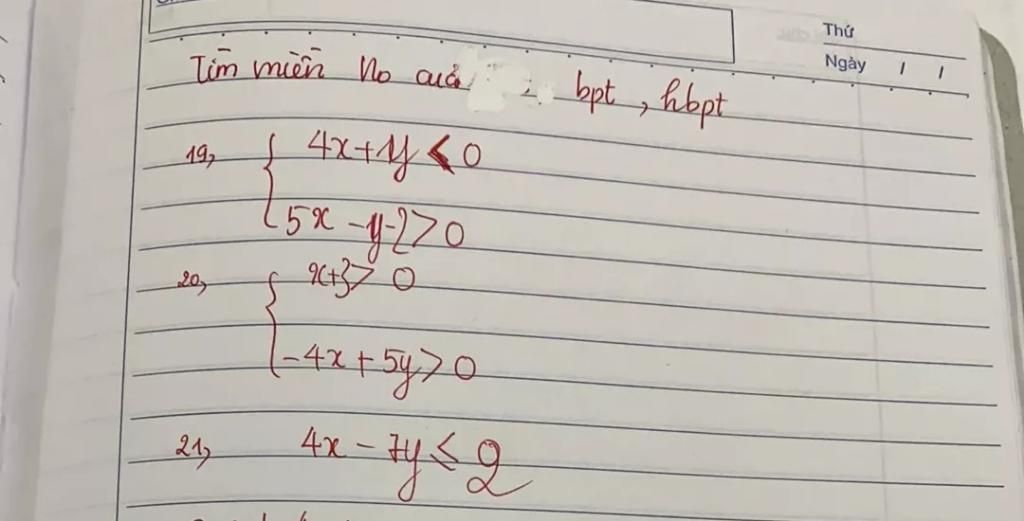 Thứ
Ngày / /
Tìm miền No của bpt, hbpt
19, { 4x+y < 0
5x - y-2 > 0
20, { x+3 > 0
-4x + 5y > 0
21, 4x - 7y ≤ 2